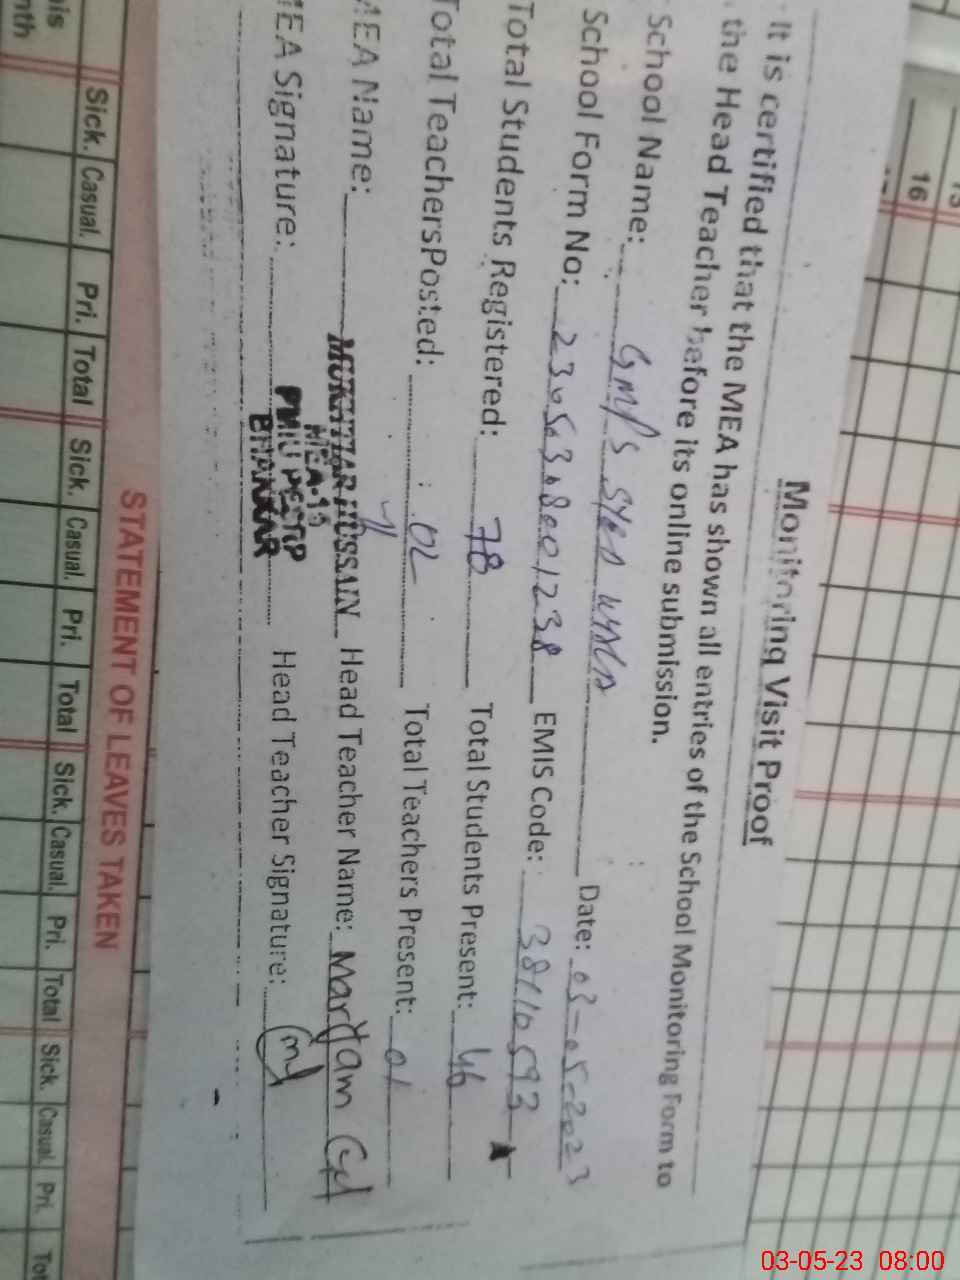 Monitoring Visit Proof
It is certified that the MEA has shown all entries of the School Monitoring Form to
the Head Teacher before its online submission.
School Name: GMPS Date: 03-05-2023
School Form No: 230538001238 EMIS Code: 38110593
Total Students Registered: 78 Total Students Present: 46
Total Teachers Posted: 02 Total Teachers Present: 01
MEA Name: MUKHTIAR HUSSAIN Head Teacher Name: Maryam Gul
MEA-15
MEA Signature: PMIU PESRP Head Teacher Signature:
BHAKKAR
STATEMENT OF LEAVES TAKEN
Sick. Casual. Pri. Total Sick. Casual. Pri. Total Sick. Casual. Pri. Total Sick. Casual. Pri.
16
03-05-23 08:00